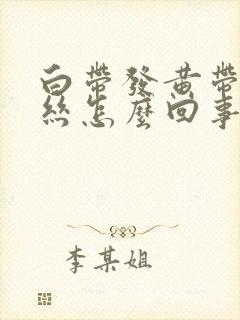 白帶發黃帶
絲怎麼回事
李某姐